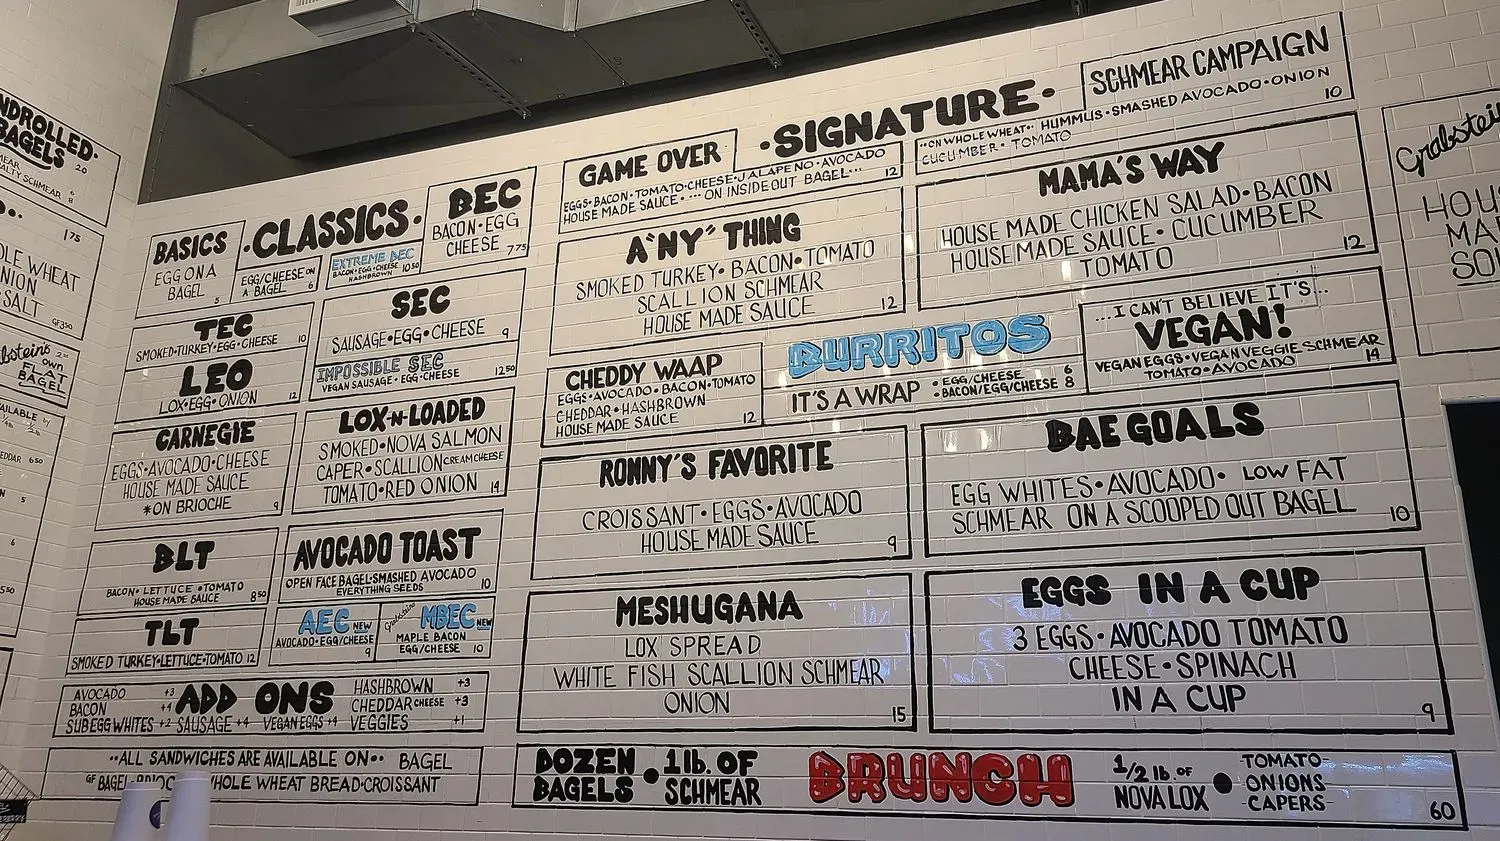 NDROLLED
BAGELS
20
MEAR 6
ALTY SCHMEAR 8
175
OLE WHEAT
NION
SALT
GF350
bstein's
OWN
FLAT
BAGEL
AILABLE
EDDAR 650
N 5
6
550
·CLASSICS·
BASICS
EGG ON A
BAGEL 5
EGG/CHEESE ON
A BAGEL 6
EXTREME BEC
BACON·EGG·CHEESE 1050
HASHBROWN
BEC
BACON·EGG
CHEESE 775
TEC
SMOKED·TURKEY·EGG·CHEESE 10
SEC
SAUSAGE·EGG·CHEESE 9
IMPOSSIBLE SEC
VEGAN SAUSAGE·EGG·CHEESE 1250
LEO
LOX·EGG·ONION 12
CARNEGIE
EGGS·AVOCADO·CHEESE
HOUSE MADE SAUCE
*ON BRIOCHE 9
LOX·N·LOADED
SMOKED·NOVA SALMON
CAPER·SCALLION CREAM CHEESE
TOMATO·RED ONION 14
BLT
BACON·LETTUCE·TOMATO
HOUSE MADE SAUCE 850
AVOCADO TOAST
OPEN FACE BAGEL·SMASHED AVOCADO
EVERYTHING SEEDS 10
TLT
SMOKED TURKEY·LETTUCE·TOMATO 12
AEC NEW
AVOCADO·EGG/CHEESE
9
Grabstein's MBEC NEW
MAPLE BACON
EGG/CHEESE 10
ADD ONS
AVOCADO +3
BACON +4
SUB EGG WHITES +2 SAUSAGE +4 VEGAN EGGS +4
HASHBROWN +3
CHEDDAR CHEESE +3
VEGGIES +1
··ALL SANDWICHES ARE AVAILABLE ON·· BAGEL
GF BAGEL·BRIOC WHOLE WHEAT BREAD·CROISSANT
·SIGNATURE·
GAME OVER
EGGS·BACON·TOMATO·CHEESE·JALAPENO·AVOCADO
HOUSE MADE SAUCE· ··· ON INSIDE OUT BAGEL··· 12
SCHMEAR CAMPAIGN
··ON WHOLE WHEAT·· HUMMUS·SMASHED AVOCADO·ONION
CUCUMBER·TOMATO 10
A "NY" THING
SMOKED TURKEY·BACON·TOMATO
SCALLION SCHMEAR
HOUSE MADE SAUCE 12
MAMA'S WAY
HOUSE MADE CHICKEN SALAD·BACON
HOUSE MADE SAUCE·CUCUMBER
TOMATO 12
CHEDDY WAAP
EGGS·AVOCADO·BACON·TOMATO
CHEDDAR·HASHBROWN
HOUSE MADE SAUCE 12
BURRITOS
IT'S A WRAP
·EGG/CHEESE 6
·BACON/EGG/CHEESE 8
...I CAN'T BELIEVE IT'S...
VEGAN!
VEGAN EGGS·VEGAN VEGGIE SCHMEAR
TOMATO·AVOCADO 14
RONNY'S FAVORITE
CROISSANT·EGGS·AVOCADO
HOUSE MADE SAUCE 9
BAE GOALS
EGG WHITES·AVOCADO· LOW FAT
SCHMEAR ON A SCOOPED OUT BAGEL 10
MESHUGANA
LOX SPREAD
WHITE FISH SCALLION SCHMEAR
ONION 15
EGGS IN A CUP
3 EGGS·AVOCADO TOMATO
CHEESE·SPINACH
IN A CUP 9
DOZEN
BAGELS
·
1 lb. OF
SCHMEAR
BRUNCH
1/2 lb. OF
NOVA LOX
·
TOMATO-
-ONIONS
-CAPERS-
60
Grabstei
HOU
MA
SO